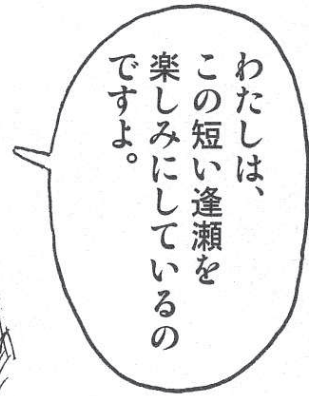 わたしは、
この短い逢瀬を
楽しみにしているの
ですよ。